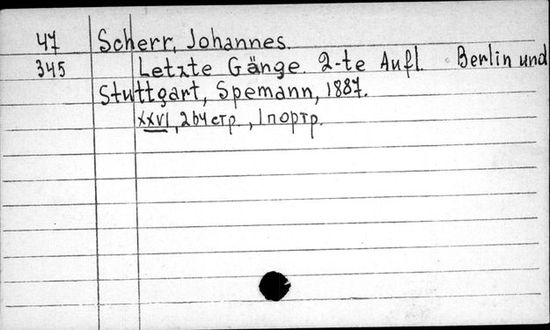 47 Scherr, Johannes.
345 Letzte Gänge. 2-te Aufl. Berlin und
Stuttgart, Spemann, 1887.
XXVI, 264 стр., 1 портр.